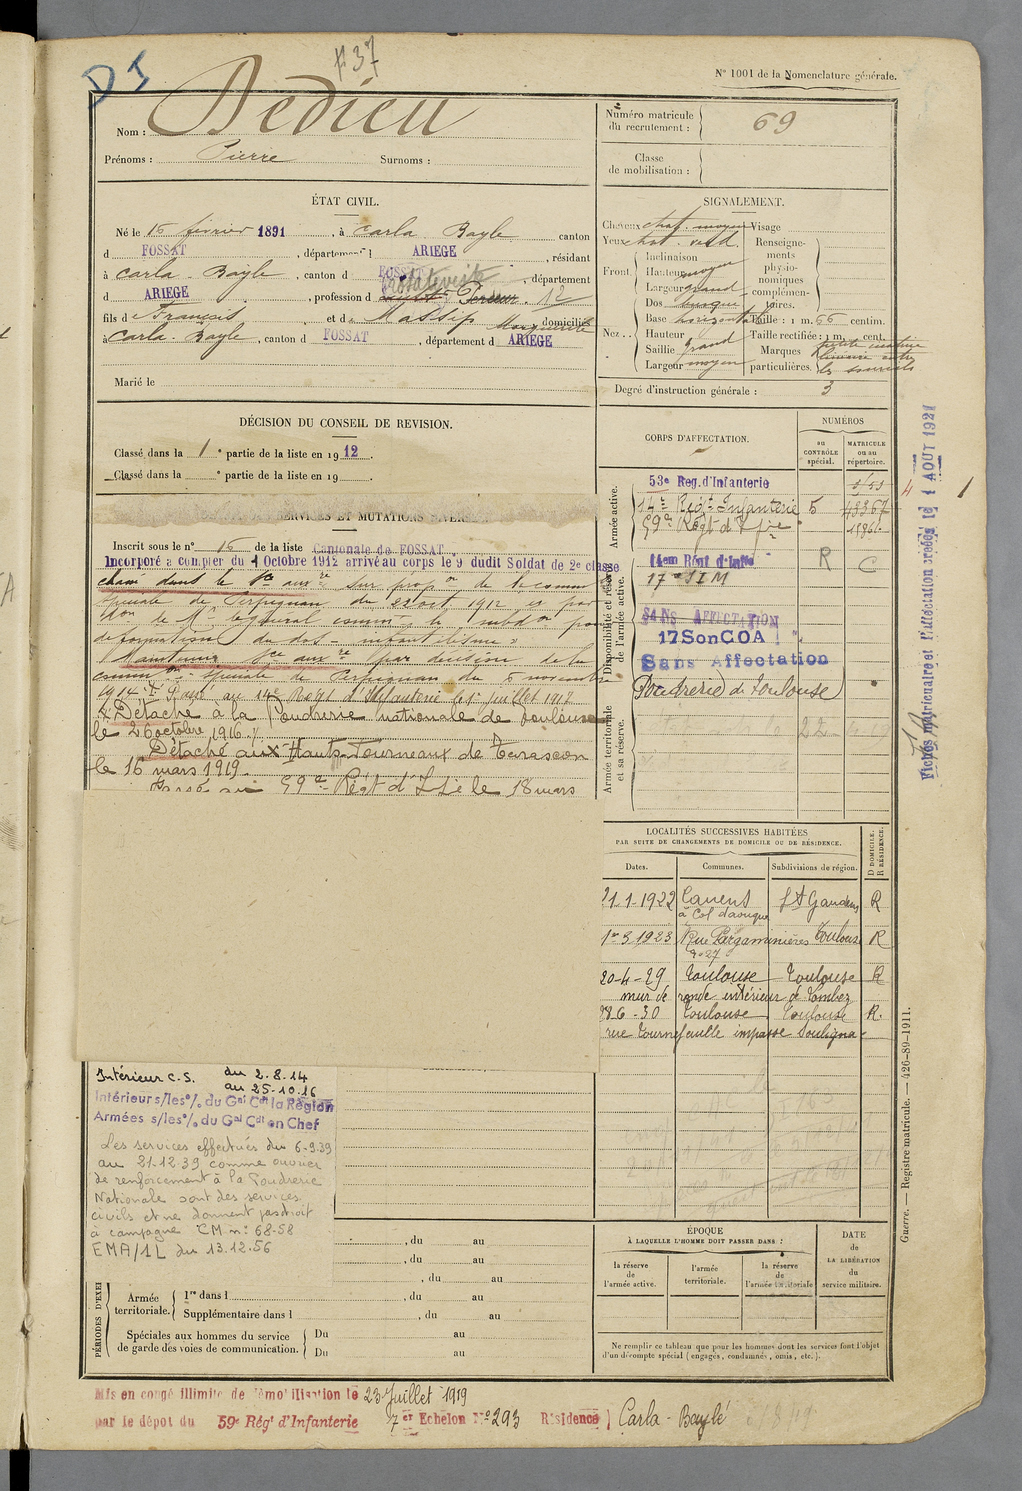 D I
#37
N° 1001 de la Nomenclature générale.
Nom : Dedieu
Prénoms : Pierre Surnoms :
Numéro matricule du recrutement : 69
Classe de mobilisation :
ÉTAT CIVIL.
Né le 15 février 1891, à Carla Bayle canton
d FOSSAT, département d ARIEGE, résidant
à Carla Bayle, canton d FOSSAT, département
d ARIEGE, profession d 12
fils de François et de Massip Marguerite domiciliés
à Carla Bayle, canton d FOSSAT, département d ARIEGE
Marié le
SIGNALEMENT.
Cheveux chat. moyen Visage
Yeux chat. verd. Renseignements physionomiques complémentaires.
Front. Inclinaison
Hauteur moyen
Largeur grand
Nez.. Dos busqué
Base horizontal Taille : 1 m. 66 centim.
Hauteur Taille rectifiée : 1 m. cent.
Saillie grand Marques particulières. petite cicatrice linéaire entre les sourcils
Largeur moyen
Degré d'instruction générale : 3
DÉCISION DU CONSEIL DE REVISION.
Classé dans la 1e partie de la liste en 1912.
Classé dans la e partie de la liste en 19 .
SERVICES ET MUTATIONS
Inscrit sous le n° 15 de la liste Cantonale de FOSSAT
Incorporé à compter du 1 Octobre 1912 arrivé au corps le 9 dudit Soldat de 2e classe
classé dans le Sce auxre sur propon de la comm
spéciale de Perpignan du 22 oct. 1912 et par
don de Mr le général comm. la subdon pour
déformation du dos
Maintenu Sce auxre par décision de la
common spéciale de Perpignan du 5 novembre
1914. Passé au 14e Régt d'Infanterie le 1er juillet 1917
Détaché à la Poudrerie nationale de Toulouse
le 26 octobre 1916
Détaché aux Hauts-Fourneaux de Tarascon
le 16 mars 1919.
Passé au 59e Régt d'Ie le 18 mars
CORPS D'AFFECTATION.
NUMÉROS
au CONTRÔLE spécial.
MATRICULE ou au répertoire.
Armée active.
53e Reg. d'Infanterie
14e Régt Infanterie 5 43367
59e Régt d'Ifie 1586
Disponibilité et réserve de l'armée active.
14em Régt d'Infie R C
17e SIM
SANS AFFECTATION
17 Son COA
Sans Affectation
Poudrerie de Toulouse
Armée territoriale et sa réserve.
22
4 1
Fiches matriculaire et d'affectation créées le 1 AOUT 1921
LOCALITÉS SUCCESSIVES HABITÉES
PAR SUITE DE CHANGEMENTS DE DOMICILE OU DE RÉSIDENCE.
Dates. Communes. Subdivisions de région. D DOMICILE. R RÉSIDENCE.
21-1-1922 Canens St Gaudens R
à Col d'aouque
1er 3 1923 Rue Pargaminières Toulouse R
n° 27
20-4-29 Toulouse Toulouse R
mur de ronde intérieur de Lombez
28 6-30 Toulouse Toulouse R.
rue Tournefeuille impasse Soulignac
Intérieur C.S. du 2.8.14
au 25-10.16
Intérieur s/les o/. du Gal Cdt la Région
Armées s/les o/. du Gal Cdt en Chef
Les services effectués du 6-9.39
au 21-12.39 comme ouvrier
de renforcement à la Poudrerie
Nationale sont des services
civils et ne donnent pas droit
à campagne CM n: 68-58
EMA/1L du 13.12.56
, du au
, du au
, du au
PÉRIODES D'EXE
Armée territoriale. 1re dans l , du au
Supplémentaire dans l , du au
Spéciales aux hommes du service de garde des voies de communication. Du au
Du au
ÉPOQUE
À LAQUELLE L'HOMME DOIT PASSER DANS :
la réserve de l'armée active.
l'armée territoriale.
la réserve de l'armée territoriale
DATE de LA LIBÉRATION du service militaire.
Ne remplir ce tableau que pour les hommes dont les services font l'objet
d'un décompte spécial (engagés, condamnés, omis, etc.).
Guerre. — Registre matricule. — 426-89-1911.
Mis en congé illimité de démobilisation le 23 Juillet 1919
par le dépot du 59e Rég' d'Infanterie 7er Echelon N° 293 Résidence Carla-Bayle